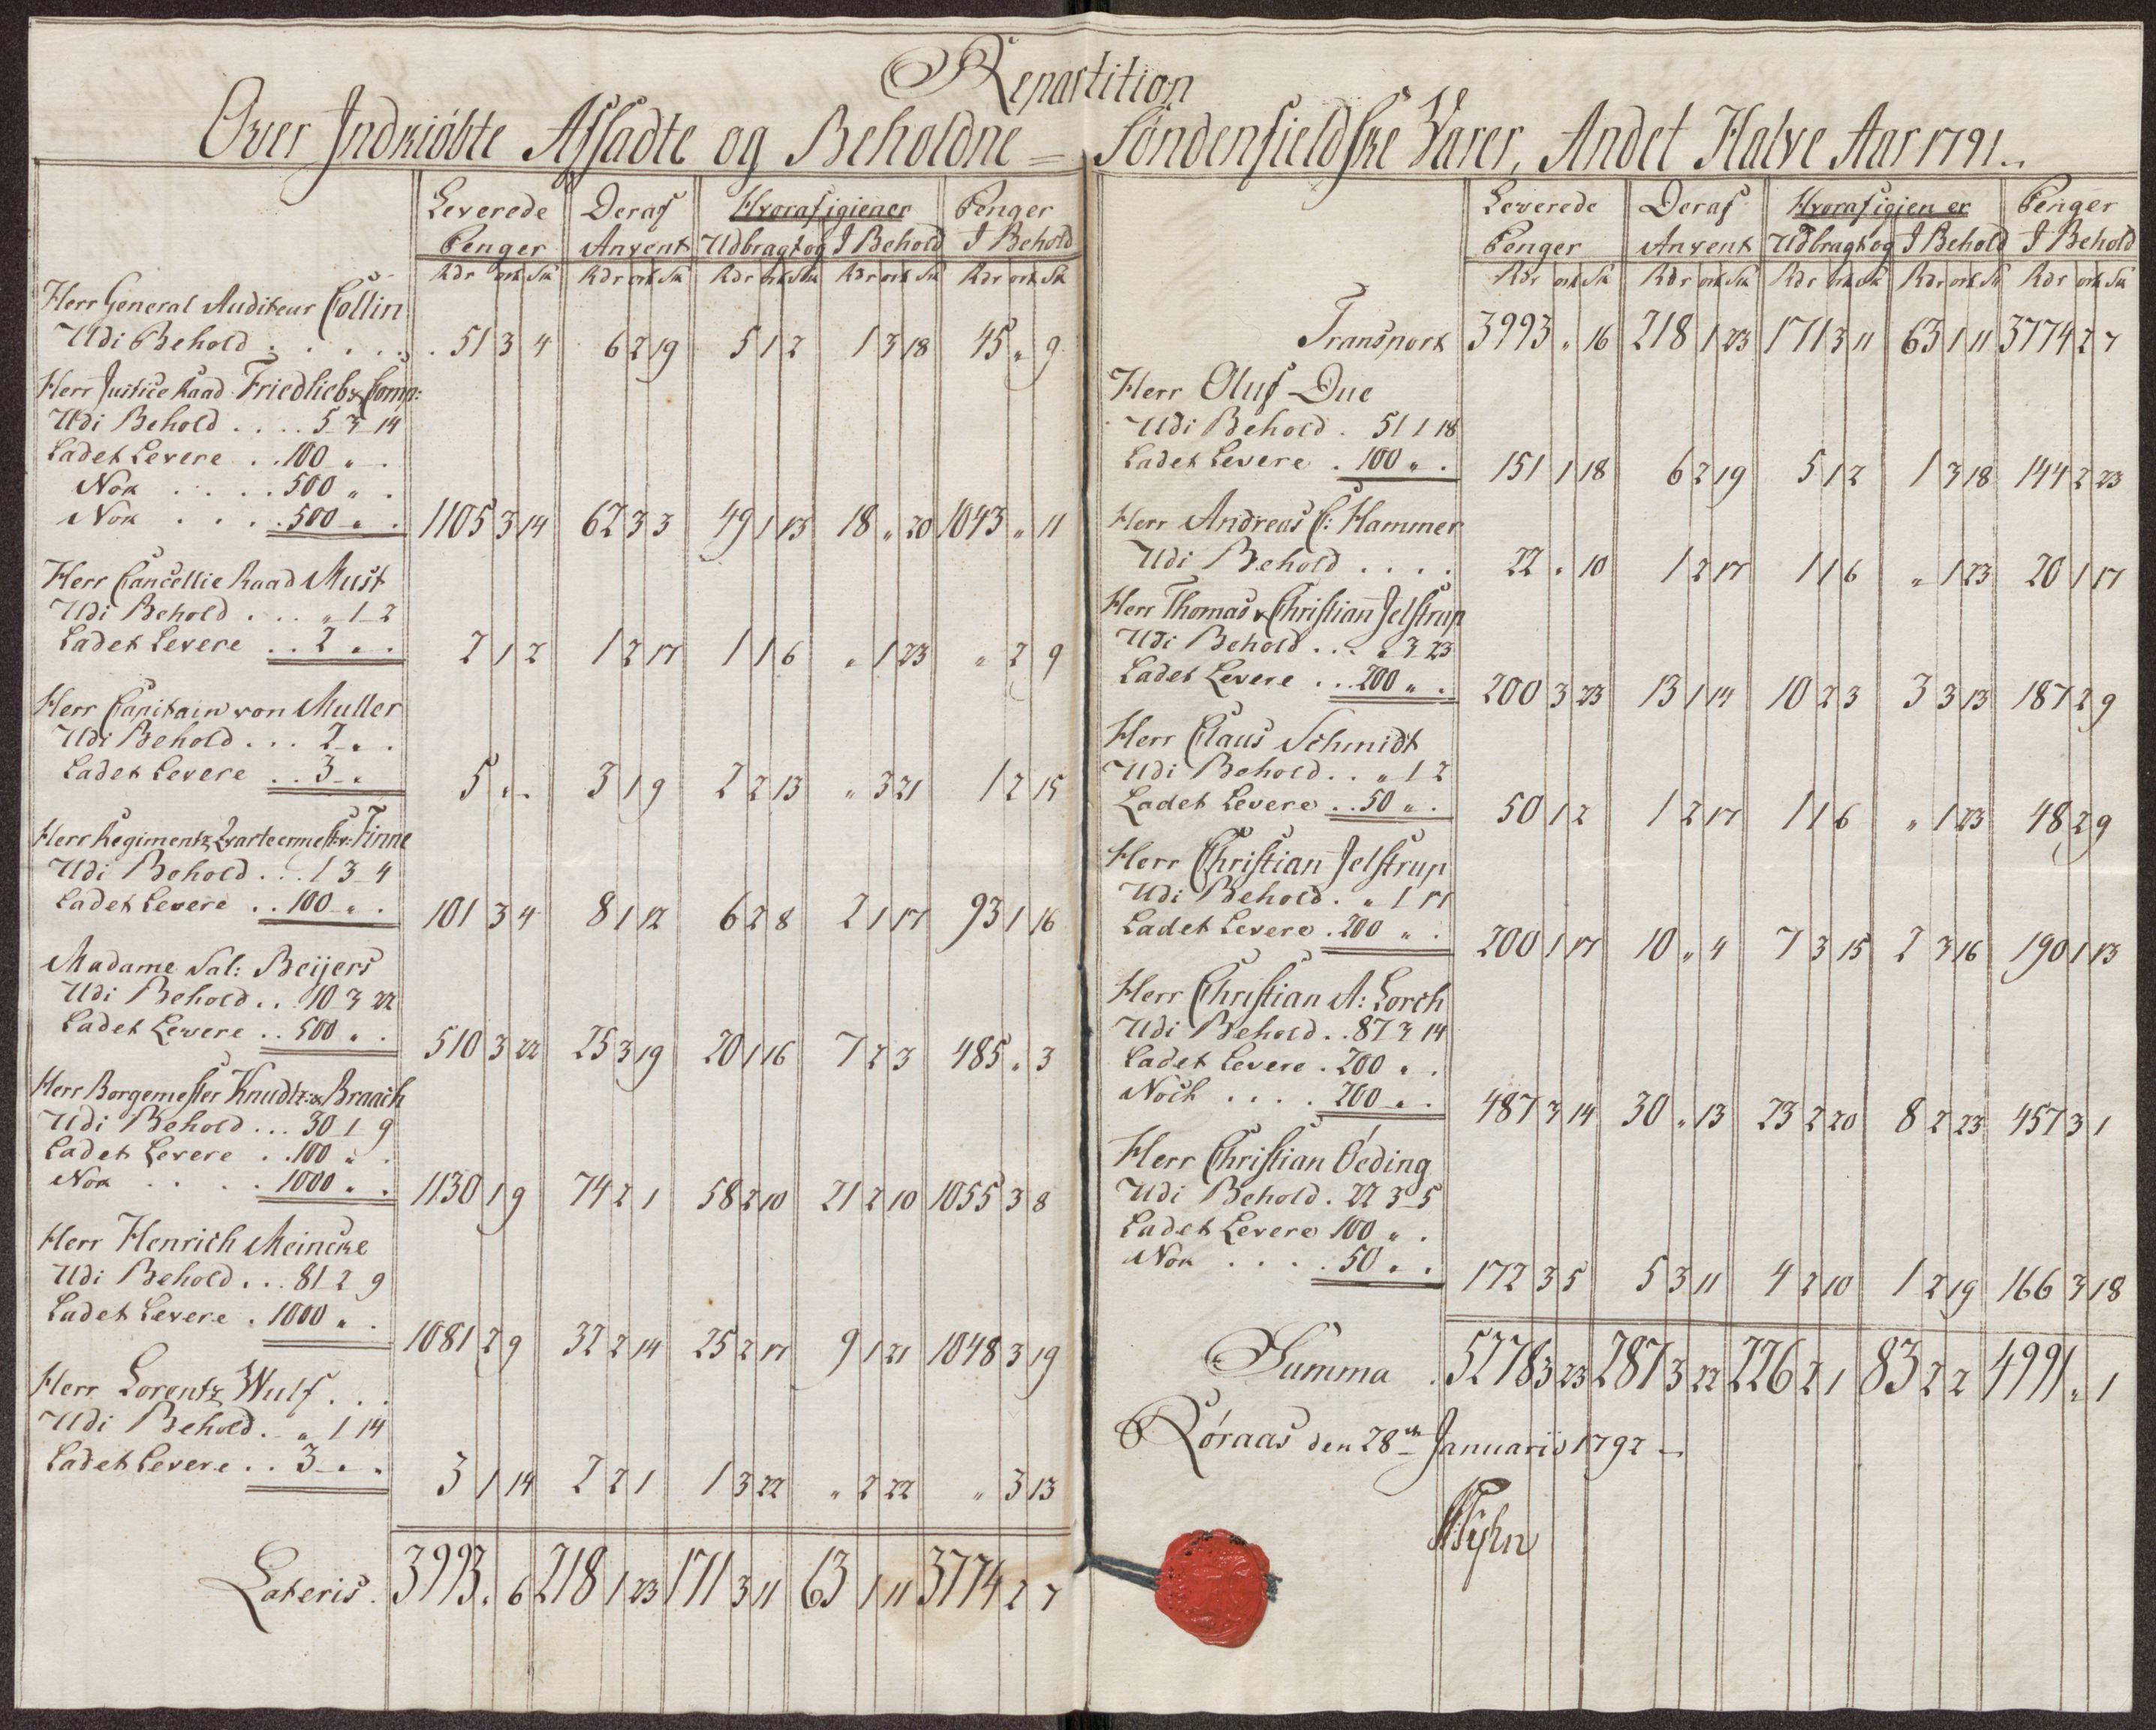 Repartition
Over Indkiöbte Afsadte og Beholdne = Söndenfieldske Varer, Andet Halve Aar 1791..
Leverede Deraf Hvoraf igiener Penger
Penger Anvent Udbragt og I Behold I Behold
Rdr ort Sk Rdr ort Sk Rdr ort Sk Rdr ort Sk Rdr ort Sk
Herr General Auditeur Collin
Udi Behold . . . . . . 51 3 4 6 2 19 5 1 2 1 3 18 45 " 9
Herr Justice Raad Friedlieb & Comp:
Udi Behold . . . . 5 3 14
Ladet Levere . . 100 " .
Nok . . . . 500 " .
Nok . . . . 500 " . 1105 3 14 62 3 3 49 1 13 18 " 20 1043 " 11
Herr Cancellie Raad Must
Udi Behold . . . " 1 2
Ladet Levere . . 2 " . 2 1 2 1 2 17 1 1 6 " 1 23 " 2 9
Herr Capitain von Muller
Udi Behold . . . 2 " .
Ladet Levere . . 3 " 5 " . 3 1 9 2 2 13 " 3 21 1 2 15
Herr Regimentz Qvarteermestr: Finne
Udi Behold . . . 1 3 4
Ladet Levere . . 100 " . 101 3 4 8 1 12 6 2 8 2 1 17 93 1 16
Madame Sal: Beijers
Udi Behold . . 10 3 22
Ladet Levere . . 500 " . 510 3 22 25 3 19 20 1 16 7 2 3 485 " 3
Herr Borgemester Knudtz: & Braach
Udi Behold . . . 30 1 9
Ladet Levere . . 100 " .
Nok . . . . 1000 " . 1130 1 9 74 2 1 58 2 10 21 2 10 1055 3 8
Herr Henrich Meincke
Udi Behold . . . 81 2 9
Ladet Levere . 1000 " . 1081 2 9 32 2 14 25 2 17 9 1 21 1048 3 19
Herr Lorentz Wulf . . .
Udi Behold . " 1 14
Ladet Levere . . 3 " " 3 1 14 2 2 1 1 3 22 " 2 22 " 3 13
Lateris . 3993 " 6 218 1 23 171 3 11 63 1 11 3774 2 7
Leverede Deraf Hvoraf igien er Penger
Penger Anvent Udbragt og I Behold I Behold
Rdr ort Sk Rdr ort Sk Rdr ort Sk Rdr ort Sk Rdr ort Sk
Transport 3993 " 16 218 1 23 171 3 11 63 1 11 3774 2 7
Herr Oluf Due
Udi Behold . 51 1 18
Ladet Levere . 100 " . 151 1 18 6 2 19 5 1 2 1 3 18 144 2 23
Herr Andreas C: Hammer
Udi Behold . . . . 22 " 10 1 2 17 1 1 6 " 1 23 20 1 17
Herr Thomas & Christian Jelstrup
Udi Behold . . . " 3 23
Ladet Levere . . . 200 " . 200 3 23 13 1 14 10 2 3 3 3 13 187 2 9
Herr Claus Schmidt
Udi Behold . . " 1 2
Ladet Levere . . 50 " . 50 1 2 1 2 17 1 1 6 " 1 23 48 2 9
Herr Christian Jelstrup
Udi Behold . " 1 17
Ladet Levere . 200 " . 200 1 17 10 " 4 7 3 15 2 3 16 190 1 13
Herr Christian A: Lorch
Udi Behold . . 87 3 14
Ladet Levere . 200 " .
Noch . . . . 200 " . 487 3 14 30 " 13 23 2 20 8 2 23 457 3 1
Herr Christian Öeding
Udi Behold . 22 3 5
Ladet Levere 100 " .
Nok . . . . 50 " . 172 3 5 5 3 11 4 2 10 1 2 19 166 3 18
Summa . 5278 3 23 287 3 22 226 2 1 83 2 2 4991 " 1
Röraas den 28de Januarii 1792